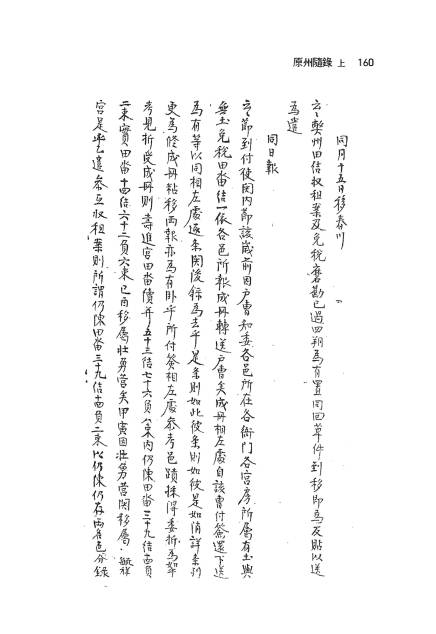 原州隨錄 上 160
同月十五日移春川
云〻弊州田結收租案及免稅磨勘已過四朔爲有置同回草件到移卽爲反貼以送
爲遣
同日報
云〻節到付使關內節該歲前因戶曹知委各邑所在各衙門各宮房所屬有土與
無土免稅田畓結一依各邑所報成冊轉送戶曹矣成冊相左處自該曹付籤還下送
爲有等以同相左處逐条関後錄爲去乎是条則如此彼条則如彼是如備詳条列
更爲修成冊粘移両報亦爲有臥乎所付籤相左處叅考邑蹟採得委折爲
考見折受成冊則壽進宮田畓債幷五十三結七十六負八束內仍陳田畓三十九結四負
二束實田畓十四結六十二負六束已酉移屬壯勇營矣甲寅因壯勇營関移屬
宮是乎乙遣叅互收租案則所謂仍陳田畓三十九結四負二束以仍陳仍存両各邑分錄